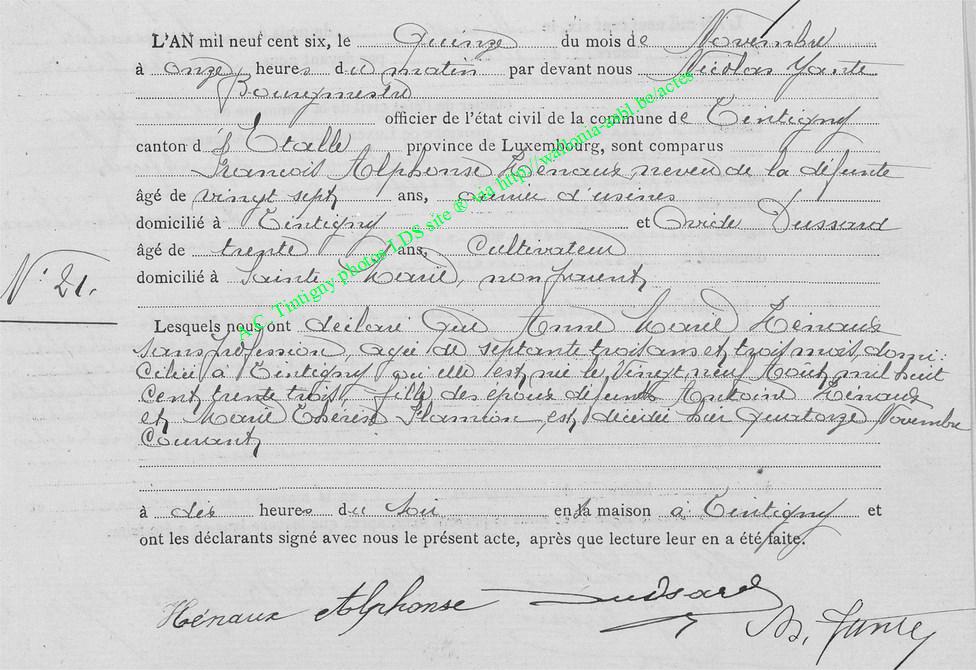 L'AN mil neuf cent six, le Quinze du mois de Novembre
à onze heures du matin par devant nous Nicolas Yante
Bourgmestre
officier de l'état civil de la commune de Tintigny
canton d'Etalle province de Luxembourg, sont comparus
François Alphonse Hénaux neveu de la défunte
âgé de vingt sept ans, ouvrier d'usines
domicilié à Tintigny et Ovide Dussard
âgé de trente ans, Cultivateur
domicilié à Sainte Marie, non parent
N° 21.
Lesquels nous ont déclaré que Anne Marie Hénaux
sans profession, agée de septante trois ans et trois mois, domi-
ciliée à Tintigny où elle est née le vingt neuf Août mil huit
cent trente trois, fille des époux défunts Antoine Hénaux
et Marie Thérèse Flamion, est décédée hier quatorze Novembre
courant
à dix heures du soir en sa maison à Tintigny et
ont les déclarants signé avec nous le présent acte, après que lecture leur en a été faite.
Hénaux Alphonse Dussard N. Yante
A.C. Tintigny photos LDS site ® via http://wallonia-asbl.be/actes